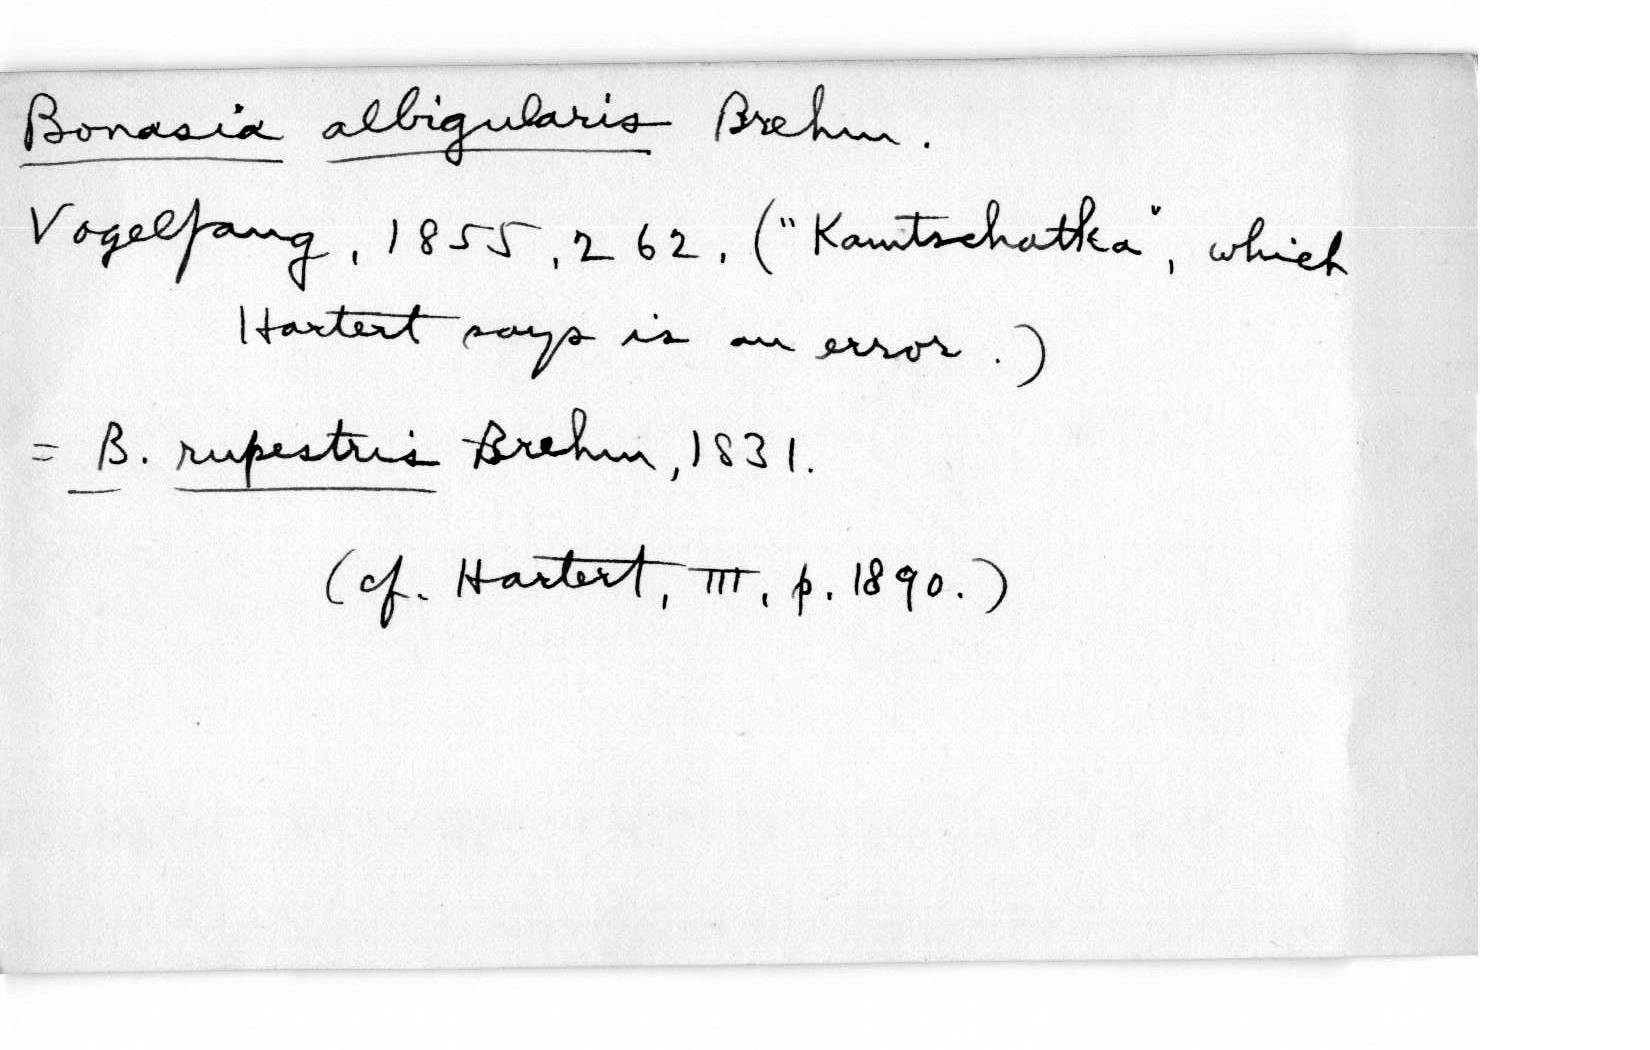 Bonasia albigularis Brehm.
Vogelfang, 1855, 262. ("Kamtschatka", which
Hartert says is an error.)
= B. rupestris Brehm, 1831.
(cf. Hartert, III, p. 1890.)